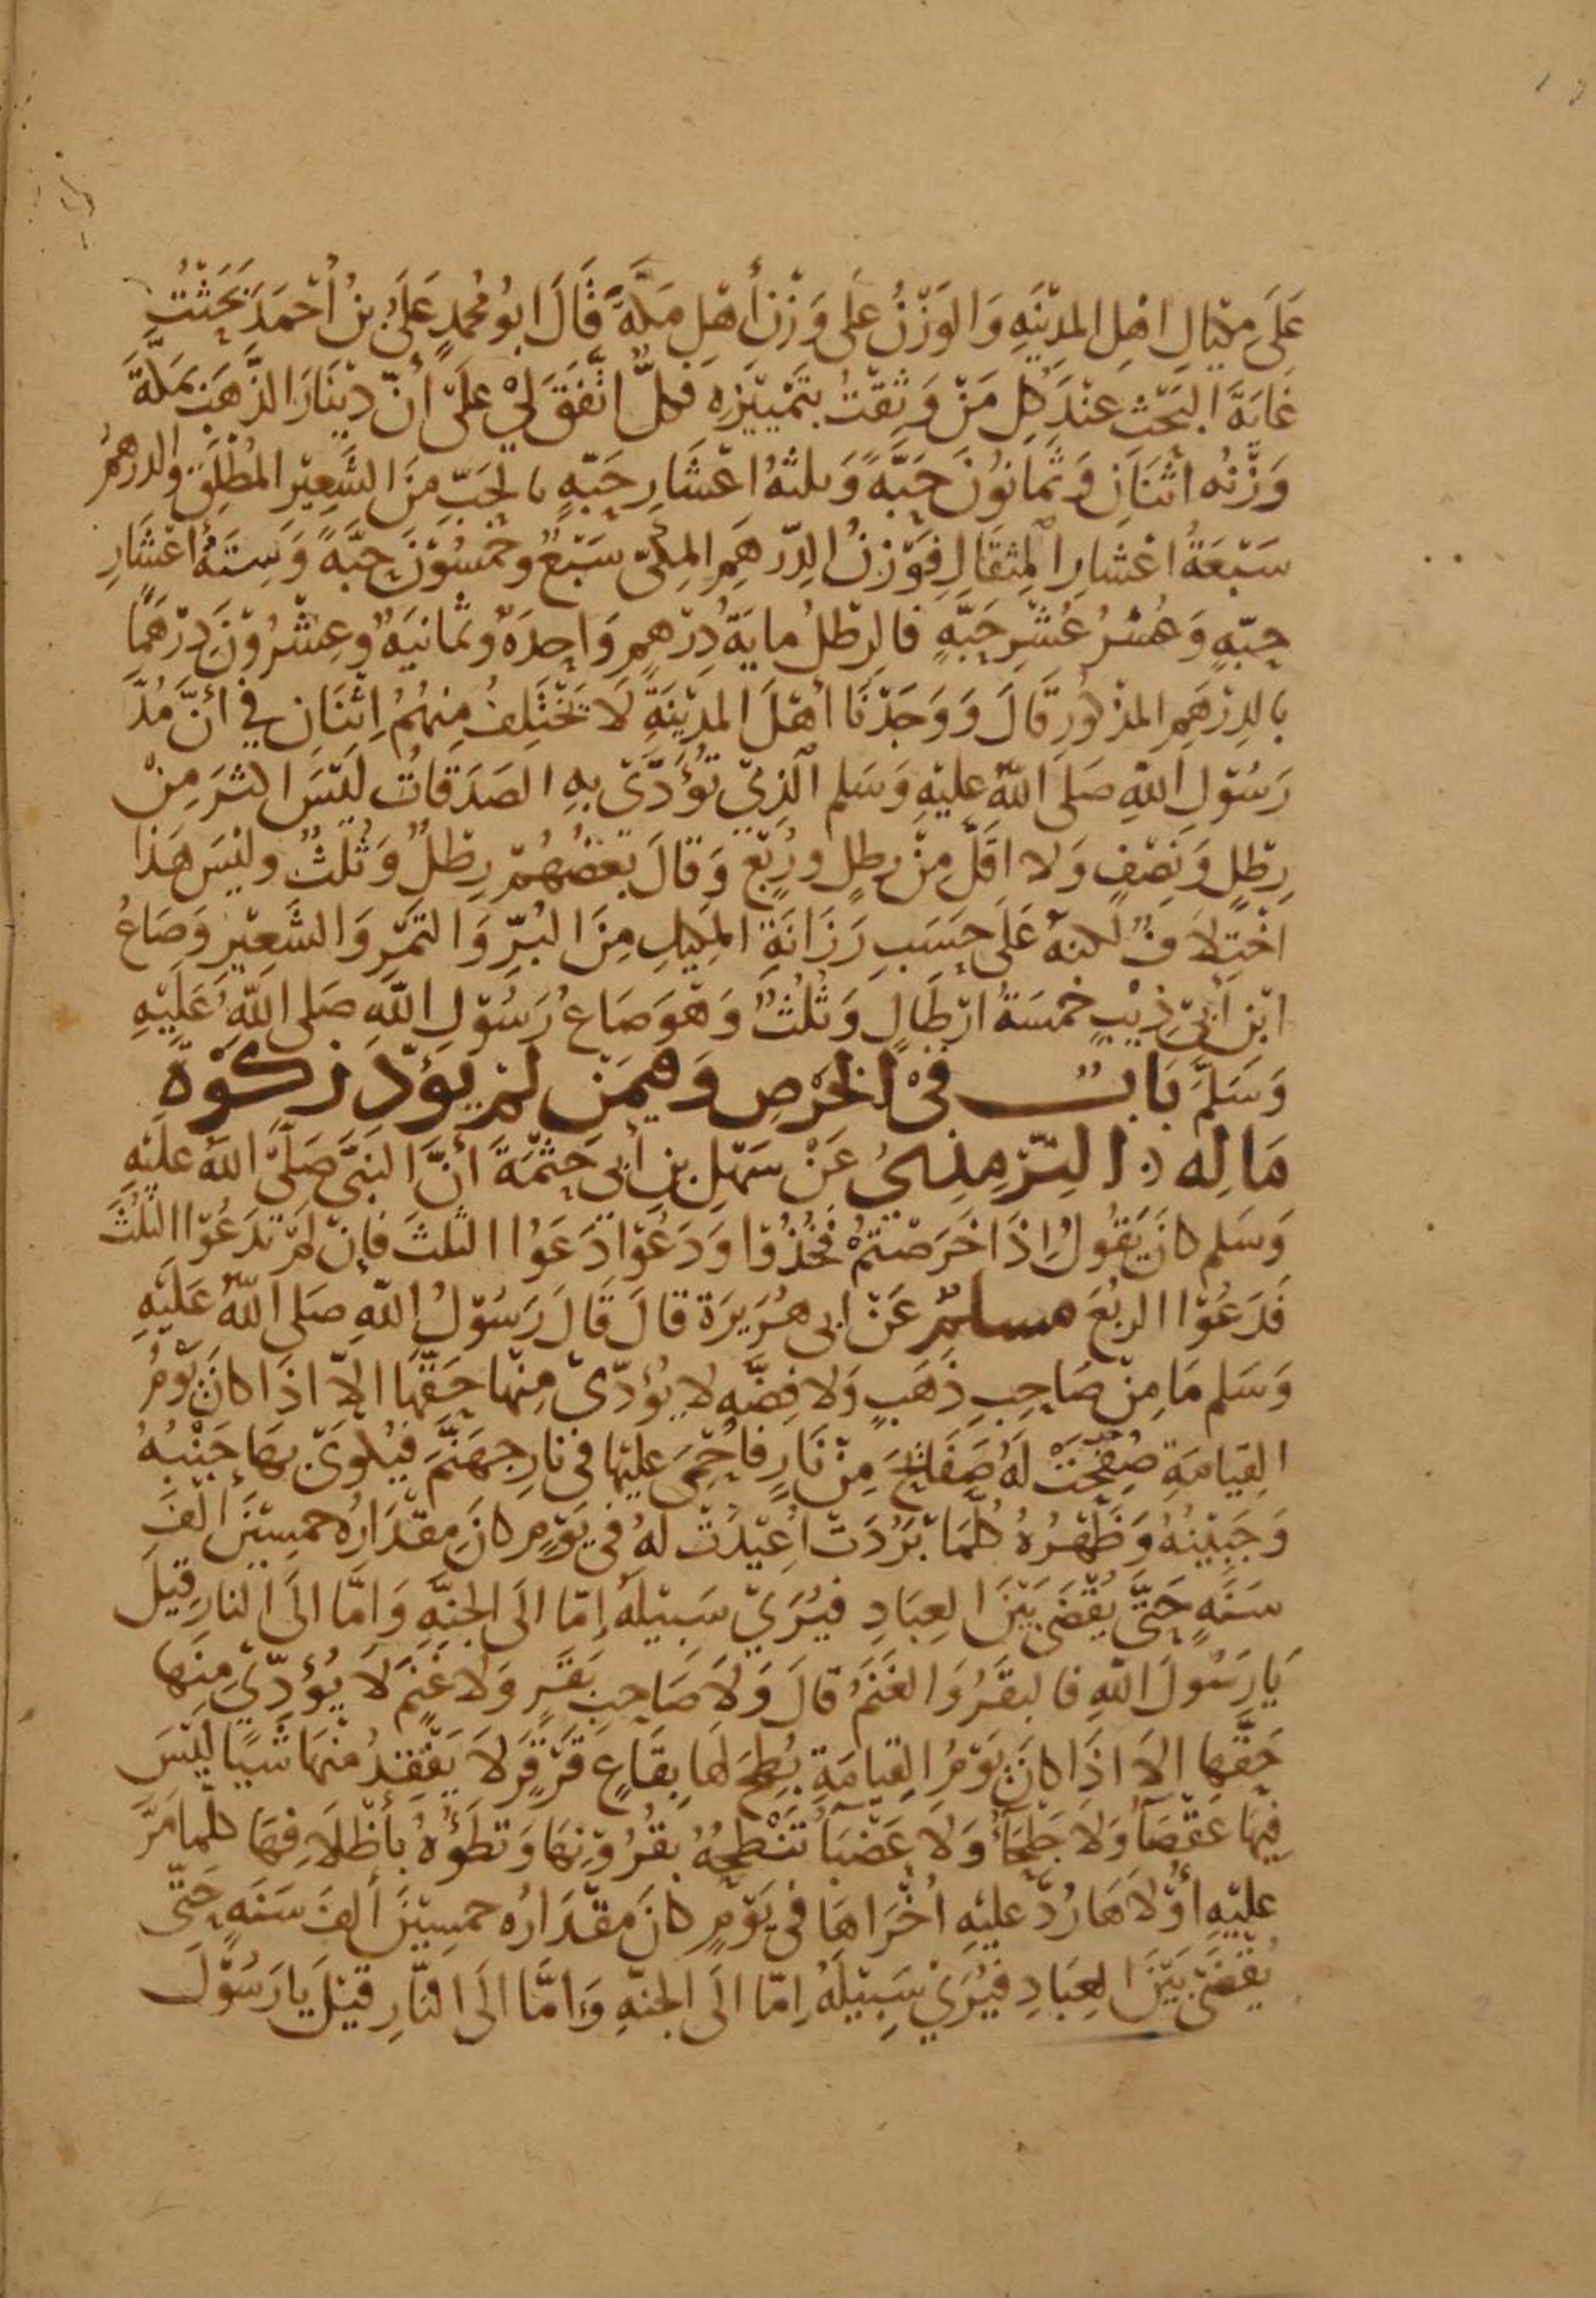 عَلَى مِكْيَالِ اهْلِ المدِيْنَهِ وَالوَزْنُ عَلى وَزْنِ أهْلِ مَكَّةَ قَالَ ابُو مُحمدٍ عَلىُّ بنُ أحْمَدَ بَحَثْتُ
غَايَةَ البَحْثِ عِنْدَ كلِ مَنْ وَثِقْتُ بتَمْيِيْزِهِ فكلٌّ اتَّفَقَ لِيْ عَلَى أنّ دِيْنَارَ الذَّهَبِ بمَكَّةَ
وَزْنُه اثْنَانِ وَثَمَانُوْنَ حَبَّةً وَثلثةُ اعْشَارِ حَبّهٍ بالحَبِّ مِنَ الشَّعِيْرِ المُطْلَقِ والدرهمُ
سَبْعَةُ اعْشارِ المِثقَالِ فَوَزْنُ الدِّرهَمِ المكِىّ سَبْعٌ وخمْسُوْنَ حبَّةً وَسِتَهُ اعْشَارِ
حبّهٍ وَعُشْرُ عُشْرِ حَبَّهٍ فالرطْلُ مايَةُ دِرْهمٍ وَاحِدَهٌ وثمانيَهٌ وعِشْرُوْنَ دِرْهَمًا
بالدِرْهَمِ المذْكُورِ قَالَ وَوَجَدْنَا أهْلَ المدِيْنَةِ لَا يَخْتَلِفُ مِنهُمُ اِثْنَانِ فيْ أنَّ مُدَّ
رَسُوْلِ اللّهِ صَلى اللّهُ علَيْهِ وَسَلم الّذِيْ تُؤَدَّى بهِ الصَدَقاتُ ليْسَ اكثرَ مِنْ
رِطْلٍ وَنصْفٍ وَلا اقَلَّ مِنْ رطلٍ ورُبْعٍ وَقالَ بَعْضُهُمْ رِطْلٌ وَثُلثٌ وليْسَ هَذا
اخْتِلَافٌ لكنهُ عَلَى حَسَبِ رَزَانَةِ المكِيلِ مِنَ البُرِّ وَالتَمْرِ وَالشَعِيْرِ وَصَاعُ
ابْنِ أبِيْ ذِيْبٍ خمْسَةُ ارْطَالٍ وَثُلُثٌ وَهْوَ صَاعُ رَسُوْلِ اللّهِ صَلى اللّهُ عَلَيْهِ
وَسَلَّمَ بَابٌ فىْ الخرْصِ وَفِيمَنْ لمْ يُؤَدِّ زَكوْةَ
مَالِه التِرْمِذِيُ عَنْ سَهْلِ بنِ أبِي حَثْمَةَ أنَّ النبَيَّ صَلَّى اللّهُ عَلَيْهِ
وَسَلم كانَ يَقُولُ اِذَا خَرَصْتُمْ فَخُذُوْا وَدَعُوْا دَعَوُا الثلثَ فإنْ لَمْ تدَعُوْا الثلُثَ
فَدَعُوْا الربُعَ مسلمٌ عَنْ ابى هُرَيرَة قالَ قَالَ رَسُوْلُ اللّهِ صَلى اللّهُ عَلَيْهِ
وَسَلم مَا مِنْ صَاحِبِ ذهَبٍ وَلا فِضّهٍ لا يُؤدّيْ مِنْها حَقّهَا الاّ اذَا كانَ يَوْمُ
القِيَامَةِ صُفّحَتْ لَهُ صَفَائحَ مِنْ نَارٍ فأحُمِىَ عليْهَا فى نَارِ جهَنَّمَ فيُكوَىْ بهَا جَنْبُهُ
وَجَبِيْنُهُ وَظَهْرُهُ كُلّمَا بَرُدَتْ أعِيْدَتْ لهُ فى يَوْمٍ كانَ مِقدَارُه خمسِيْنَ ألفَ
سَنَهٍ حَتَّى يُقضَى بَيْنَ العِبَادِ فيُرَيْ سَبيْلَهُ إمّا الَى الجنّهِ وَامّا الَى النارِ قِيلَ
يَا رَسُولَ اللّهِ فالبقَرُ وَالغَنَمُ قالَ وَلَا صَاحِبِ بَقَرٍ وَلا غَنَمٍ لَا يُؤدّيْ مِنها
حَقَّها الاَ اذَا كانَ يَوْمُ القِيَامَةِ بُطِحَ لهَا بِقَاعٍ قَرْقَرٍ لاَ يَفْقِدُ مِنْهَا شَيًا ليْسَ
فِيهَا عَقْصَآُ وَلا جَلحَآُ وَلا عَضْبَآُ تَنْطِحُهُ بقُرُوْنِهَا وَتطَؤُهُ بأظْلَافِهَا كلّما مَرَّ
عليْهِ أوْلَاهَا رُدَّ عليْهِ أخْرَاهَا فى يَوْمٍ كانَ مقْدَارُه خمسِيْنَ ألفَ سَنَهٍ حَتَّى
يُقْضَىْ بَيْنَ العِبَادِ فيُرَيْ سَبيْلَهُ اِمّا الَى الجنّهِ وَامَّا الَى النّارِ قيْلَ يا رَسُوْلَ